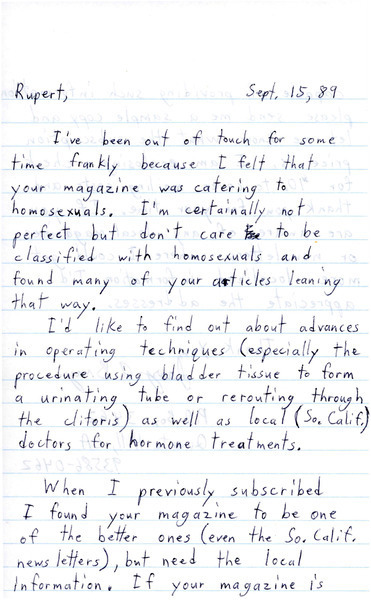 Rupert, Sept. 15, 89
I've been out of touch for some
time frankly because I felt that
your magazine was catering to
homosexuals. I'm certainally not
perfect but don't care to be
classified with homosexuals and
found many of your articles leaning
that way.
I'd like to find out about advances
in operating techniques (especially the
procedure using bladder tissue to form
a urinating tube or rerouting through
the clitoris) as well as local (So. Calif.)
doctors for hormone treatments.
When I previously subscribed
I found your magazine to be one
of the better ones (even the So. Calif.
news letters), but need the local
information. If your magazine is